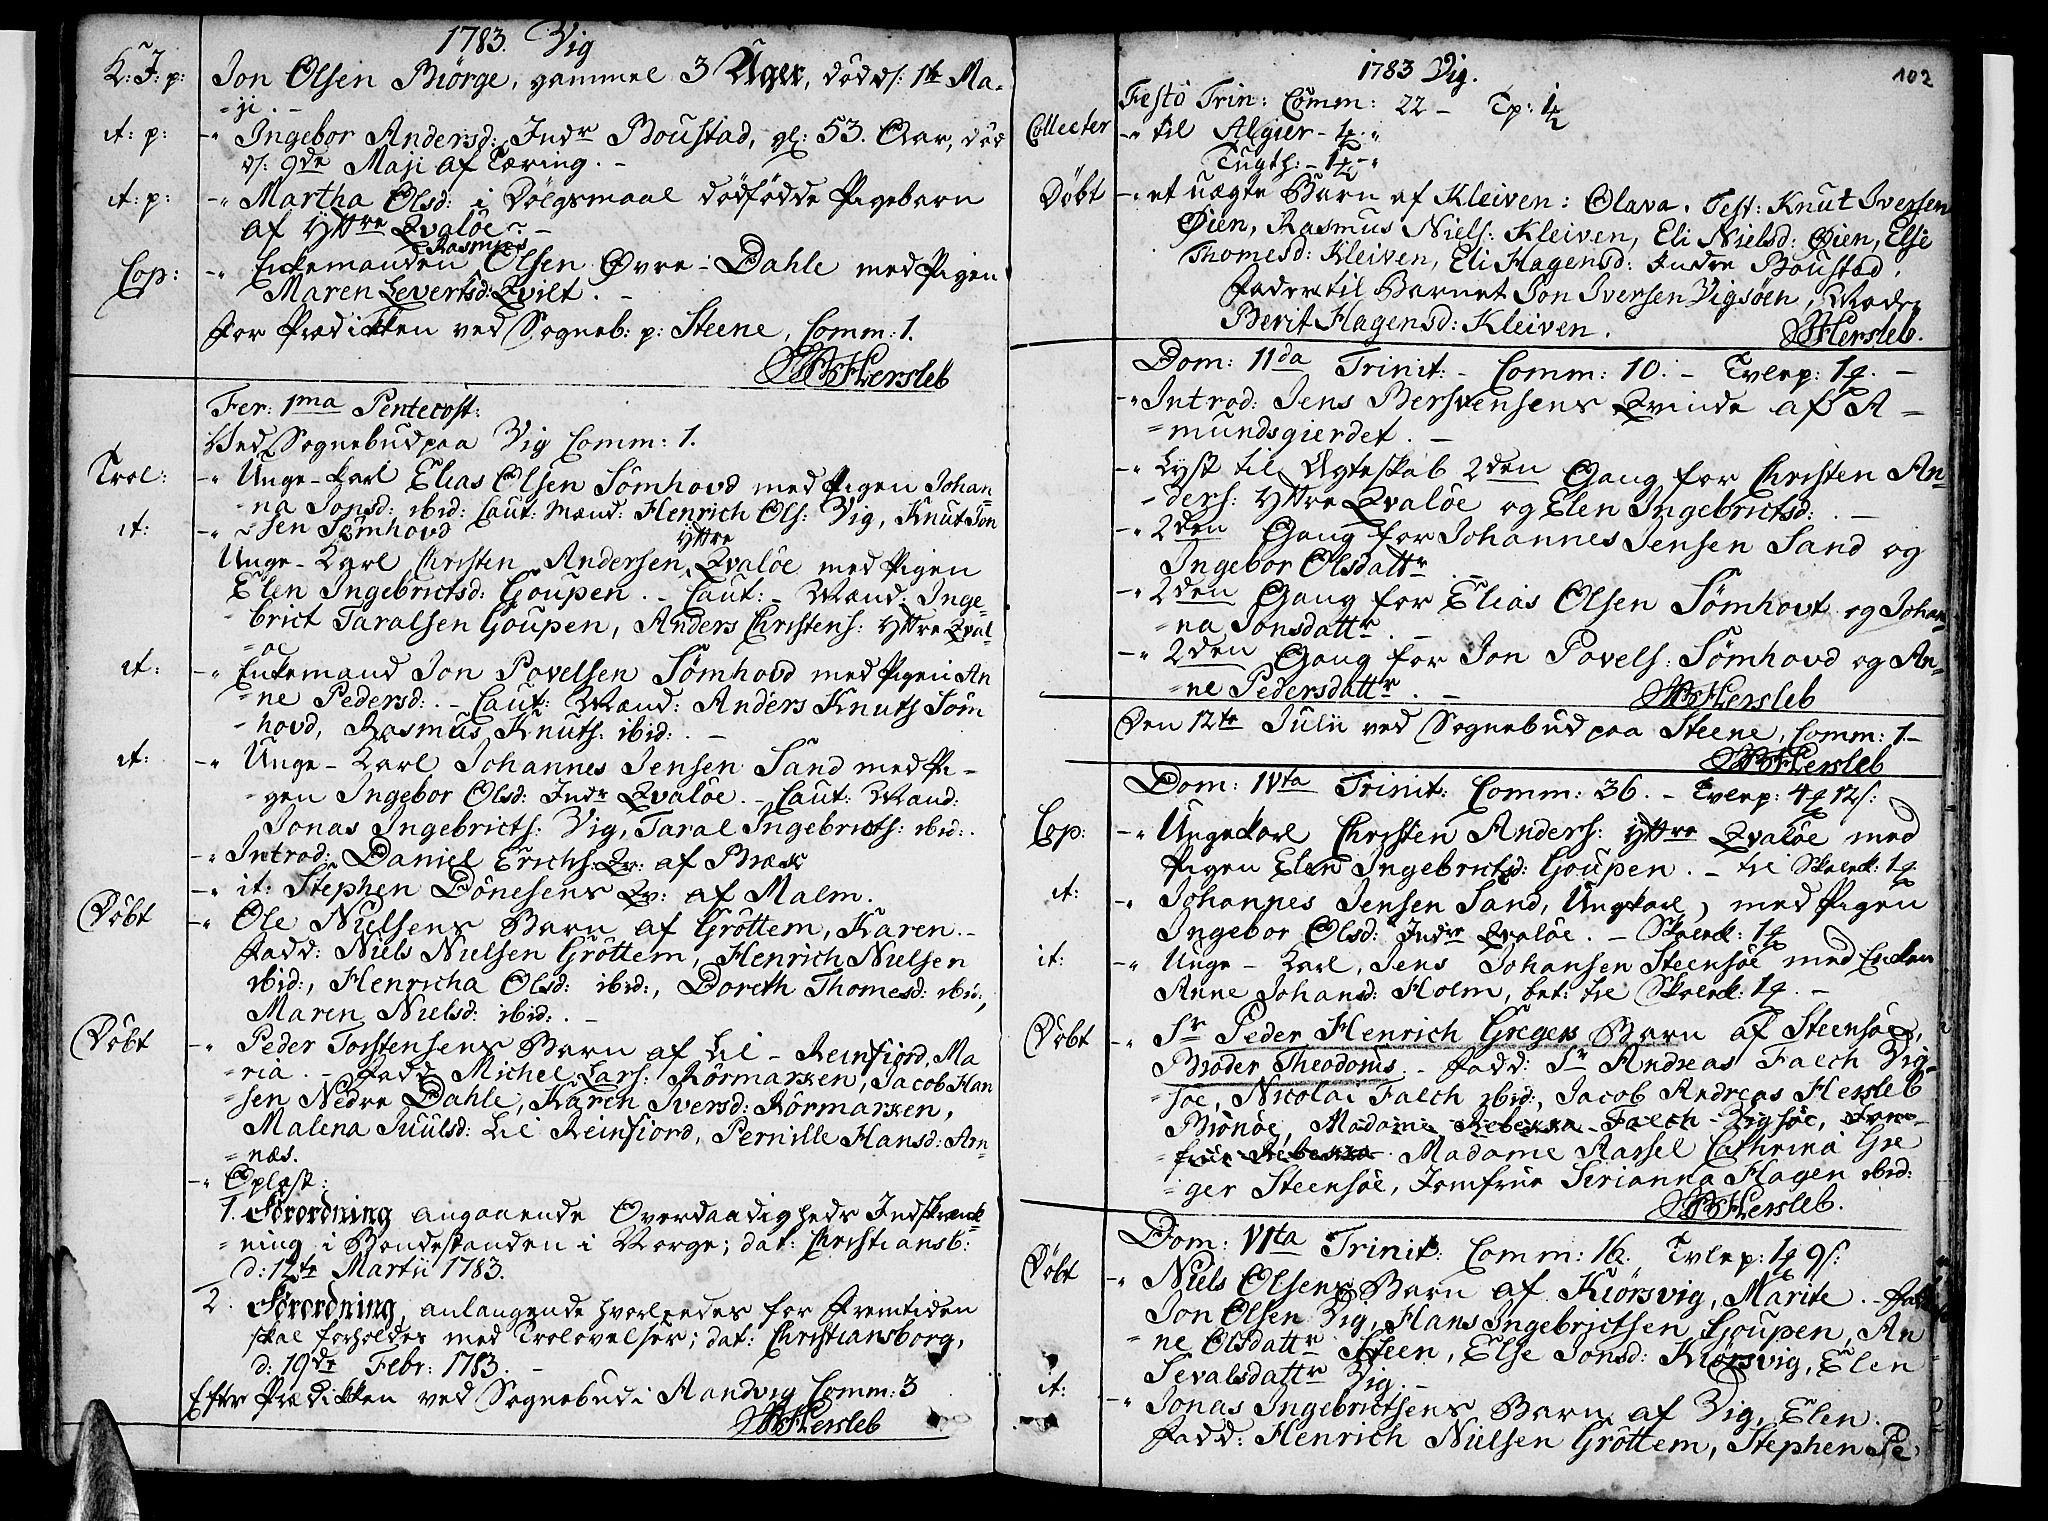 1783. Vig
K: J: p: Jon Olsen Biörge, gammel 3 Uger, död d: 1te Ma-
=ji. -
it: p: -" Ingebor Andersd: Indr Boustad, gl: 53. Aar, död
d: 9de Maji af Tæring. -
it: p: -" Martha Olsd: i Dölgsmaal dödfödde Pigebarn
af Yttre Qvalöe. -
Rasmus
Cop: -" Enkemanden Olsen Øvre-Dahle med Pigen
Maren Levertsd: Qvilt. -
For Prædikken ved Sogneb: p: Steene, Comm: 1.
Hersleb
Fer: 1ma Pentecost:
Ved Sognebud paa Vig Comm: 1.
Trol: -" Unge-Karl Elias Olsen Sömhovd med Pigen Johan=
=na Jonsd: ibid: Caut: Mænd: Henrich Ols: Vig, Knut Jon
it: -" =sen Sömhovd
Yttre
Unge-Karl Christen Andersen Qvalöe med Pigen
Elen Ingebrictsd: Goupen. - Caut:- Mænd: Inge=
=brict Taralsen Goupen, Anders Christens: Yttre Qval=
=øe
it: -" Enkemand Jon Povelsen Sömhovd med Pigen An
=ne Pedersd:. - Caut: Mænd: Anders Knuts Söm
=hovd, Rasmus Knuts: ibid:. -
it: -" Unge-Karl Johannes Jensen Sand med Pi-
=gen Ingebor Olsd: Indr Qvalöe. - Caut: Mænd:
Jonas Ingebricts: Vig, Taral Ingebricts: ibid:.
-" Introd: Daniel Erichs: Qv: af Bræk
-" it: Stephen Dönesens Qv: af Malm.
Döbt -" Ole Nielsens Barn af Gröttem, Karen. -
Fadd: Niels Nielsen Gröttem, Henrich Nielsen
ibid:, Henricha Olsd: ibid:, Doreth Thomesd: ibid:,
Maren Nielsd: ibid:. -
Döbt -" Peder Torstensens Barn af Lil-Reinfiord, Ma
=ria. - Fadd: Michel Lars: Rörmarken, Jacob Han
=sen Nedre Dahle, Karen Iversd: Rörmarken,
Malena Juulsd: Lil Reinfiord, Pernille Hansd: Arn=
=næs.
-" Oplæst:
1. Forordning angaaende Overdaadigheds Indskrænk=
=ning i Bondestanden i Norge; dat: Christiansb:
d: 12te Martii 1783.
2. Forordning anlangende hvorledes for Fremtiden
skal forholdes med Trolovelser; dat: Christiansborg,
d: 19de Febr: 1783. -
Efter Prædikken ved Sognebud i Aandvig Comm: 3
Hersleb
1783 Vig. 102
Festo Trin: Comm: 22 -
Collecter -" til Algier -
Tugth: -
Döbt -" et uægte Barn af Kleiven: Olava. Test: Knut Iversen
Øien, Rasmus Niels: Kleiven, Eli Nielsd: Øien, Else
Thomesd: Kleiven, Eli Hagensd: Indre Boustad.
Fader til Barnet Jon Iversen Vigsöen, Moder
Berit Hagensd: Kleiven.
Hersleb.
Dom: 11da Trinit: - Comm: 10. -
-" Introd: Jens Bersvensens Qvinde af A-
=mundsgierdet. -
-" Lyst til Ægteskab 2den Gang for Christen An=
=ders: Yttre Qvalöe og Elen Ingebrictsd:. -
-" 2den Gang for Johannes Jensen Sand og
Ingebor Olsdattr. -
-" 2den Gang for Elias Olsen Sömhovt og Johan=
=na Jonsdattr. -
-" 2den Gang for Jon Povels: Sömhovd og An=
=ne Pedersdattr. -
Hersleb
Den 12te Julii ved Sognebud paa Steene, Comm: 1.-
Hersleb
Dom: IVta Trinit: Comm: 36. -
Cop: -" Ungekarl Christen Anders: Yttre Qvalöe med
Pigen Elen Ingebrictsd: Goupen. -
it: -" Johannes Jensen Sand, Ungkarl, med Pigen
Ingebor Olsd: Indr Qvalöe. -
it: -" Unge-Karl, Jens Johansen Steensöe med Enken
Anne Johansd: Holm,
Döbt -" Sr Peder Henrich Gregers Barn af Steensöe,
Broder Theodorus. - Fadd: Sr Andreas Falch Vig=
=söe, Nicolai Falch ibid:, Jacob Andreas Hersleb
Biönöe, Madame Rebekka Falch Vigsöe, Jom=
=frue Rebekka Madame Aassel Cathrina Gre
=ger Steensöe, Jomfrue Sirianna Hagen ibid:
Hersleb.
Dom: VIta Trinit: Comm: 16.
Döbt -" Niels Olsens Barn af Kiörsvig, Marite. - Fadd:
Jon Olsen Vig, Hans Ingebrictsen Goupen, An
=ne Olsdattr Steen, Else Jonsd: Kiörsvig, Elen
Sevalsdattr Vig. -
it: -" Jonas Ingebrictsens Barn af Vig, Elen.
Fadd: Henrich Nielsen Gröttem, Stephen Pe